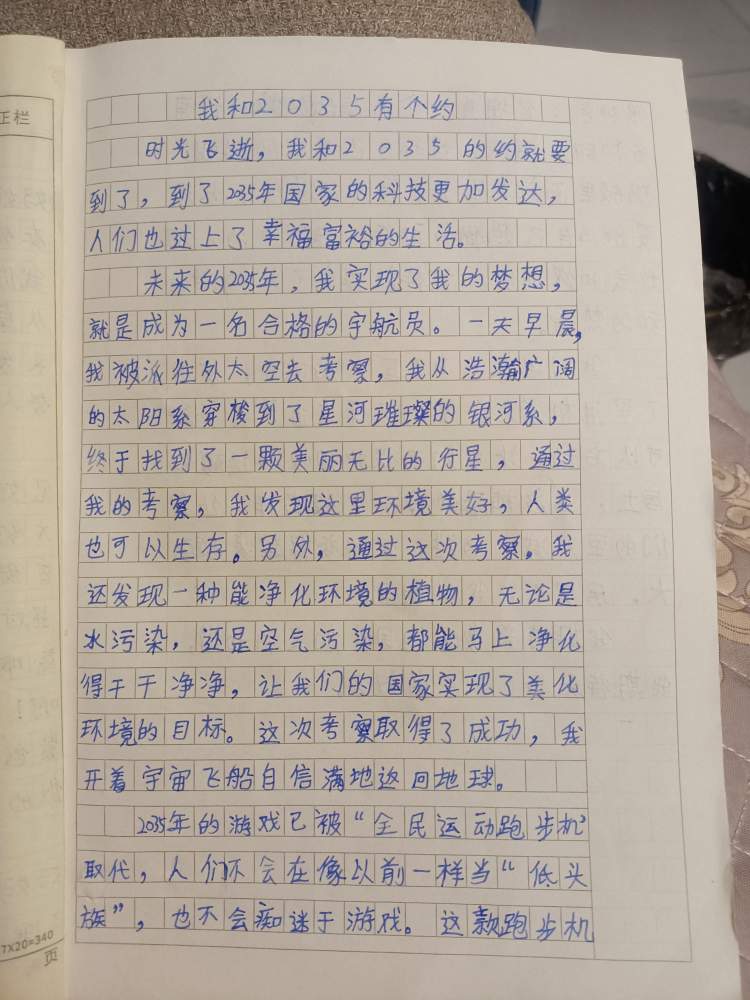 正栏
我和2035有个约
时光飞逝，我和2035的约就要
到了，到了2035年国家的科技更加发达，
人们也过上了幸福富裕的生活。
未来的2035年，我实现了我的梦想，
就是成为一名合格的宇航员。一天早晨，
我被派往外太空去考察，我从浩瀚广阔
的太阳系穿梭到了星河璀璨的银河系，
终于找到了一颗美丽无比的行星，通过
我的考察，我发现这里环境美好，人类
也可以生存。另外，通过这次考察。我
还发现一种能净化环境的植物，无论是
水污染，还是空气污染，都能马上净化
得干干净净，让我们的国家实现了美化
环境的目标。这次考察取得了成功，我
开着宇宙飞船自信满地返回地球。
2035年的游戏已被“全民运动跑步机”
取代，人们不会在像以前一样当“低头
族”，也不会痴迷于游戏。这款跑步机
7X20=340
页